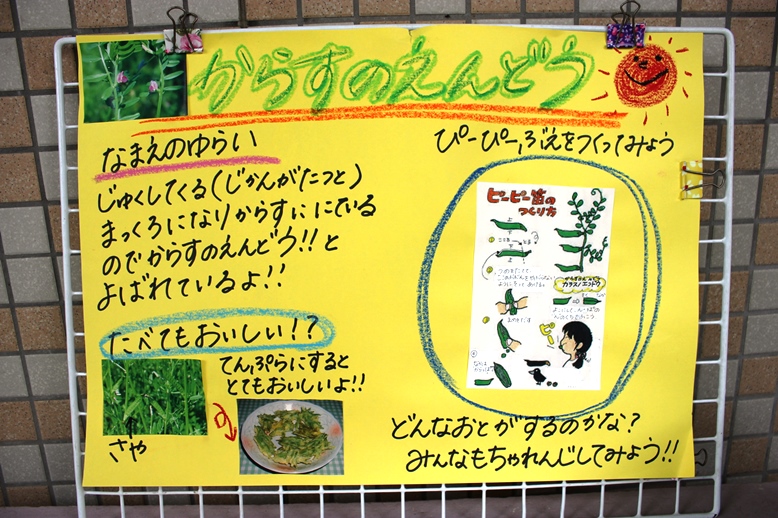 からすのえんどう
なまえのゆらい
じゅくしてくる(じかんがたつと)
まっくろになりからすににている
のでからすのえんどう!!と
よばれているよ!!
たべてもおいしい!?
てんぷらにすると
とてもおいしいよ!!
さや
ぴーぴーぶえをつくってみよう
ピーピー笛の
つくり方
カラスノエンドウ
ピー
どんなおとがするのかな?
みんなもちゃれんじしてみよう!!